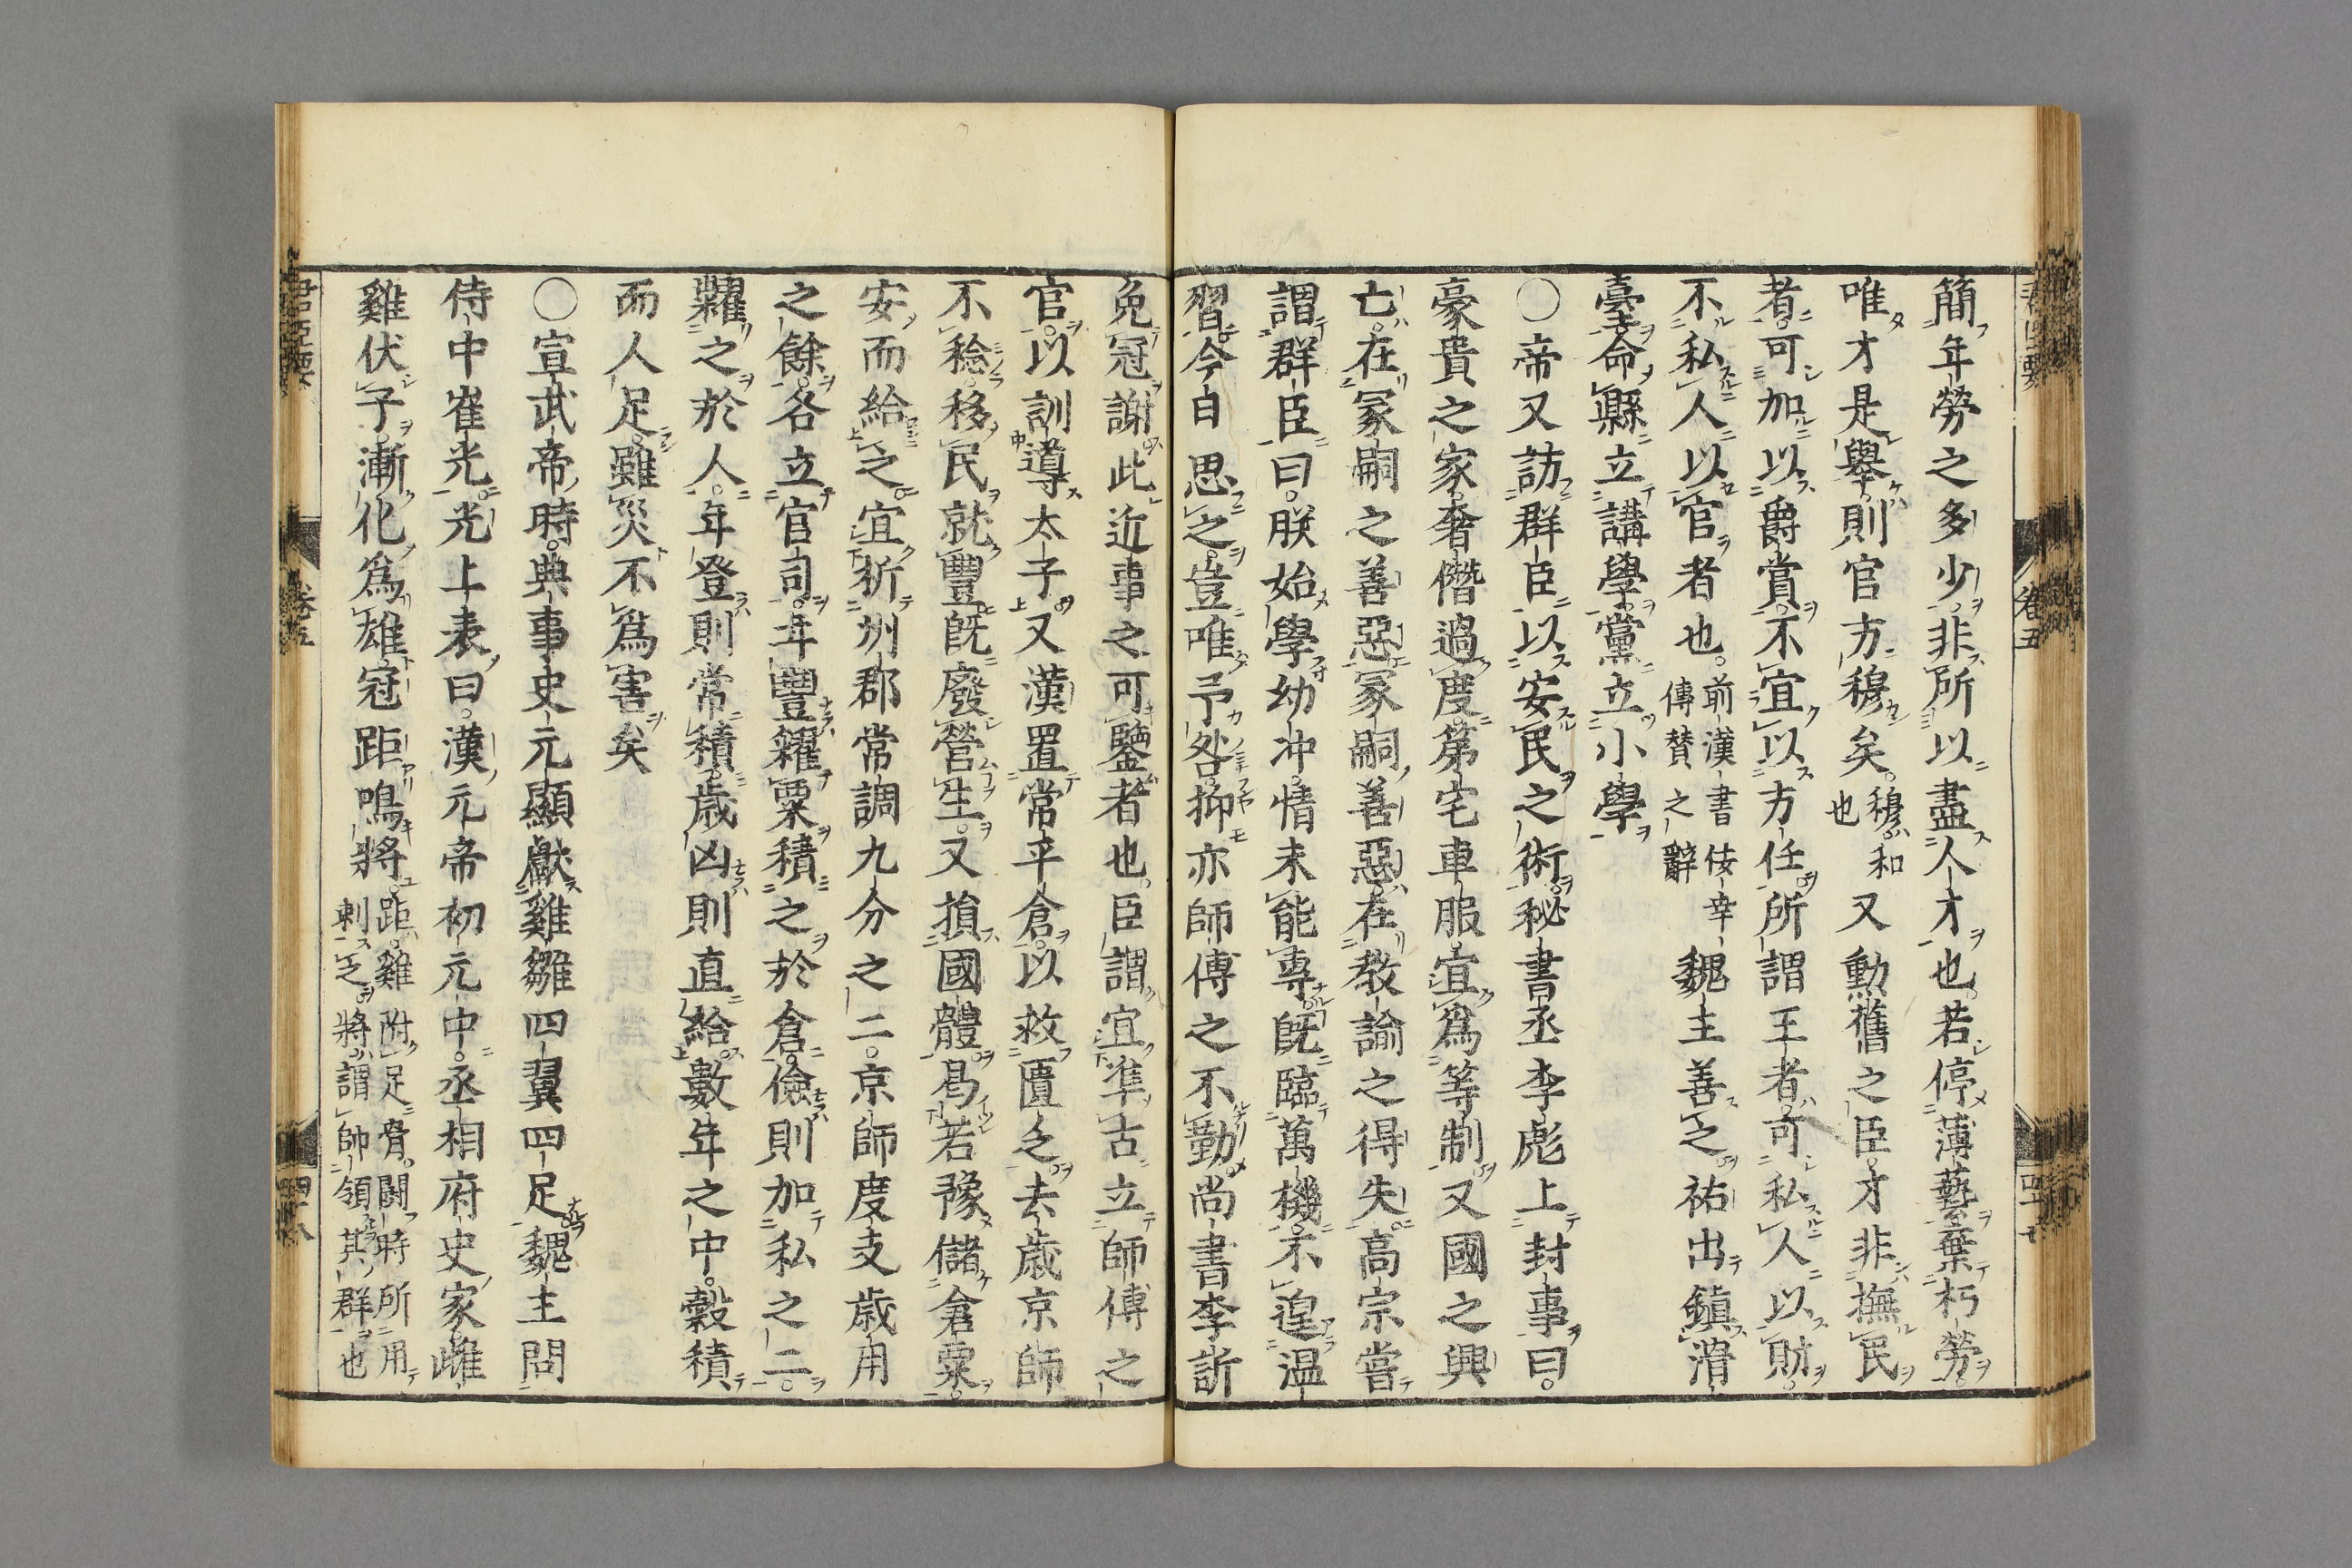 簡年勞之多少非所以盡人才也若停薄藝棄朽勞
唯才是舉則官方穆矣穆和也又勳舊之臣才非撫民
者可加以爵賞不宜以方任所謂王者可私人以財
不私人以官者也前漢書佞幸傳贊之辭魏主善之祐出鎮滑
臺命縣立講學黨立小學
〇帝又訪群臣以安民之術秘書丞李彪上封事曰
豪貴之家奢僭過度第宅車服宜爲等制又國之興
亡在冢嗣之善惡冢嗣善惡在教諭之得失高宗嘗
謂群臣曰朕始學幼冲情未能專既臨萬機不遑温
習今日思之豈唯予咎抑亦師傅之不勤尚書李訢
免冠謝此近事之可鑒者也臣謂宜準古立師傅之
官以訓導太子又漢置常平倉以救匱乏去歲京師
不稔移民就豐既廢營生又損國體曷若豫儲倉粟
安而給之宜折州郡常調九分之二京師度支歲用
之餘各立官司年豐糴粟積之於倉儉則加私之二
糶之於人年登則常積歲凶則直給數年之中穀積
而人足雖災不爲害矣
〇宣武帝時典事史元顯獻雞雛四翼四足魏主問
侍中崔光光上表曰漢元帝初元中丞相府史家雌
雞伏子漸化爲雄冠距鳴將距雞附足骨鬪時所用刺之將謂帥領其群也
卷五
四十七
卷五
四十八